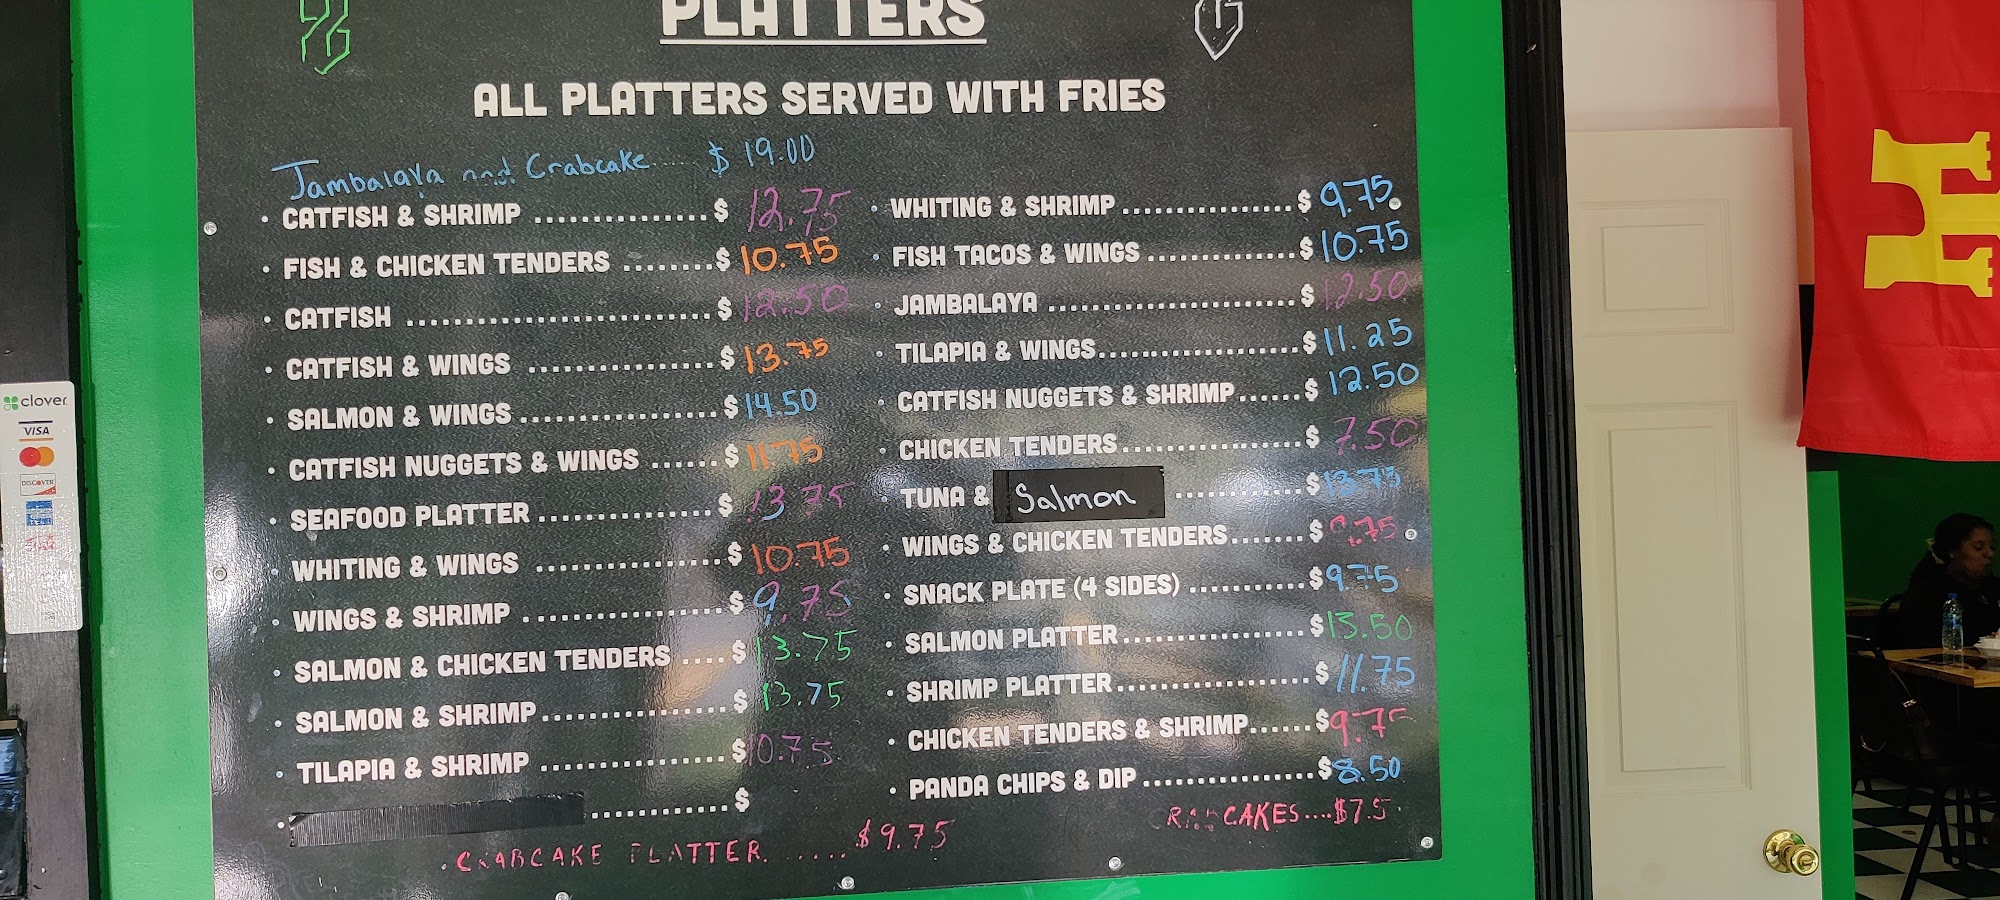 PLATTERS
ALL PLATTERS SERVED WITH FRIES
Jambalaya and Crabcake ..... $ 19.00
• CATFISH & SHRIMP ................ $ 12.75
• FISH & CHICKEN TENDERS ........ $ 10.75
• CATFISH ............................ $ 12.50
• CATFISH & WINGS ................. $ 13.75
• SALMON & WINGS .................. $ 14.50
• CATFISH NUGGETS & WINGS ...... $ 11.75
• SEAFOOD PLATTER ............... $ 13.75
• WHITING & WINGS ................ $ 10.75
• WINGS & SHRIMP ................. $ 9.75
• SALMON & CHICKEN TENDERS .... $ 13.75
• SALMON & SHRIMP ................ $ 13.75
• TILAPIA & SHRIMP ................ $ 10.75
• ............ $
• CRABCAKE PLATTER ...... $ 9.75
• WHITING & SHRIMP ................ $ 9.75
• FISH TACOS & WINGS .............. $ 10.75
• JAMBALAYA ........................ $ 12.50
• TILAPIA & WINGS .................. $ 11.25
• CATFISH NUGGETS & SHRIMP ...... $ 12.50
• CHICKEN TENDERS ................. $ 7.50
• TUNA & Salmon ............ $
• WINGS & CHICKEN TENDERS ....... $
• SNACK PLATE (4 SIDES) ........... $ 9.75
• SALMON PLATTER .................. $ 13.50
• SHRIMP PLATTER ................... $ 11.75
• CHICKEN TENDERS & SHRIMP ...... $ 9.75
• PANDA CHIPS & DIP ................ $ 8.50
clover
VISA
DISCOVER